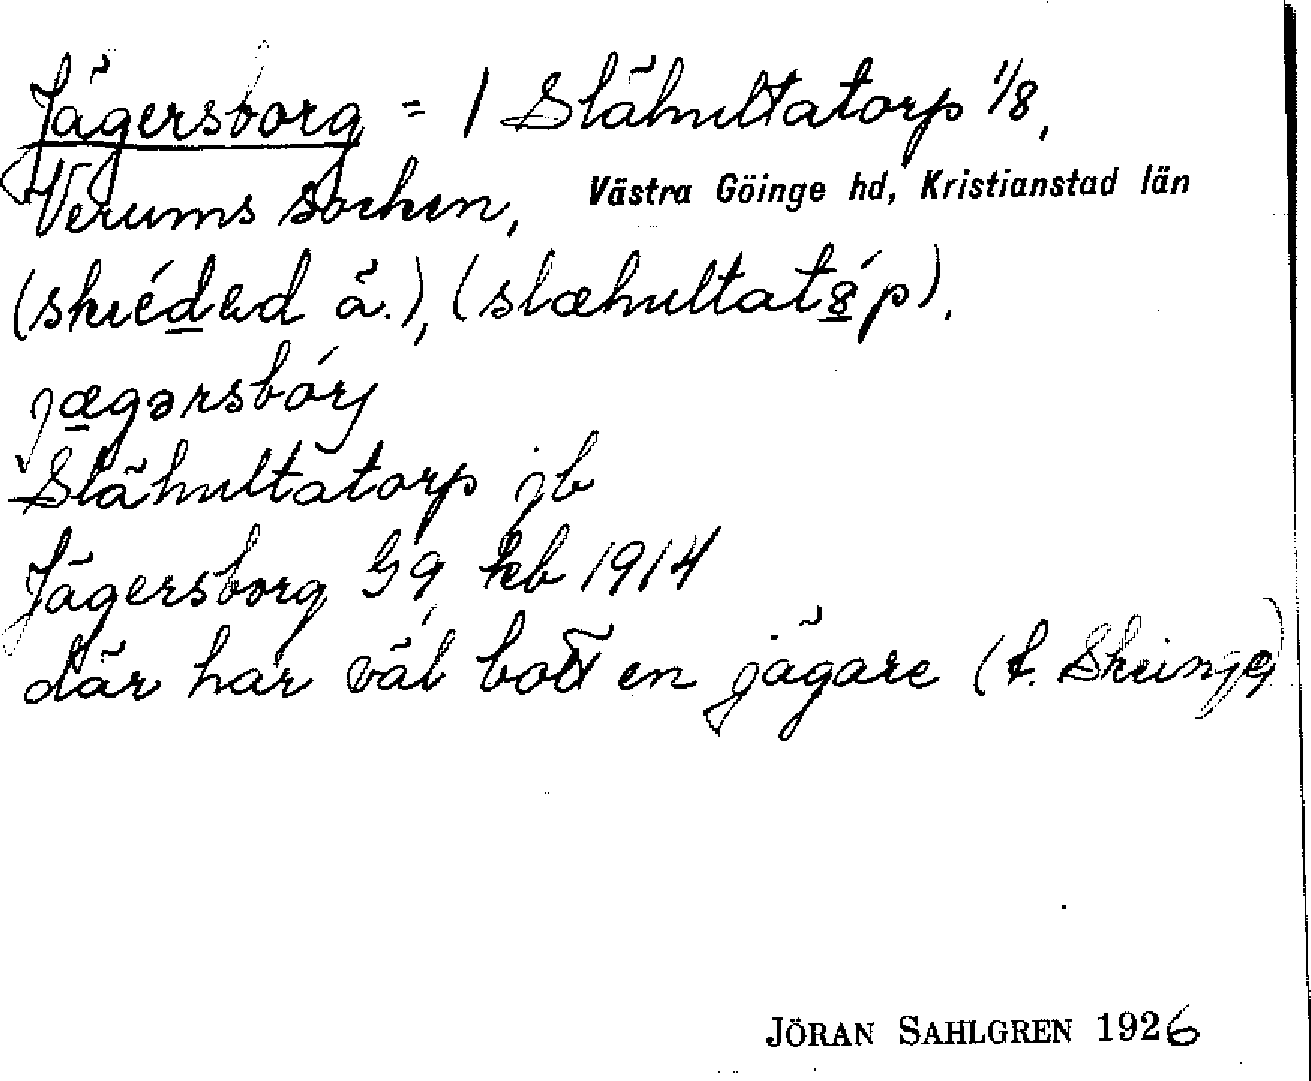 Jägersborg = 1 Slähultatorp 1/8,
Verums socken, Västra Göinge hd, Kristianstad län
(skréded ä.), (slæhultatáp).
jægərsbórj
Slähultatorp jb
Jägersborg G9 kb 1914
där har väl bott en jägare (t. Skeinge)
JÖRAN SAHLGREN 1926